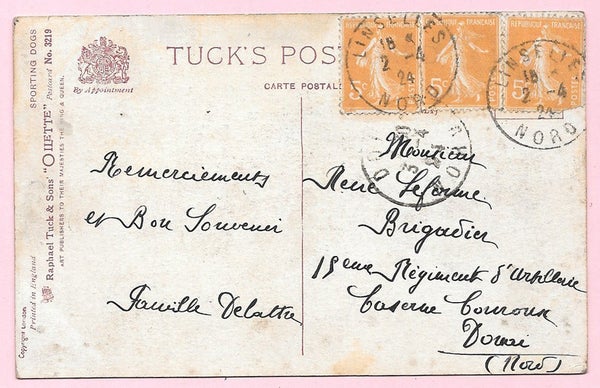 SPORTING DOGS
Raphael Tuck & Sons' "OILETTE" Postcard No. 3219
ART PUBLISHERS TO THEIR MAJESTIES THE KING & QUEEN.
Printed in England
Copyright London
By Appointment
TUCK'S POS
CARTE POSTALE
RÉPUBLIQUE FRANÇAISE
5c
5c
LINSELLES
18
2 -4
24
NORD
LINSELLES
18
2 -4
NORD
NORD
Remerciements
et Bon Souvenir
Famille Delattre
Monsieur
René Leforme
Brigadier
15eme Régiment d'Artillerie
Caserne Couroux
Douai
(Nord)